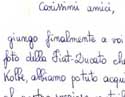 Carissimi amici,
giungo finalmente a voi
foto della Fiat-Ducato che
Kolk, abbiamo potuto acqui